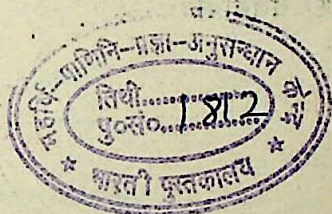 महर्षि-पाणिनि-प्रज्ञा-अनुसन्धान केन्द्र
तिथी..............
पु०सं०.1812
★ भारती पुस्तकालय ★